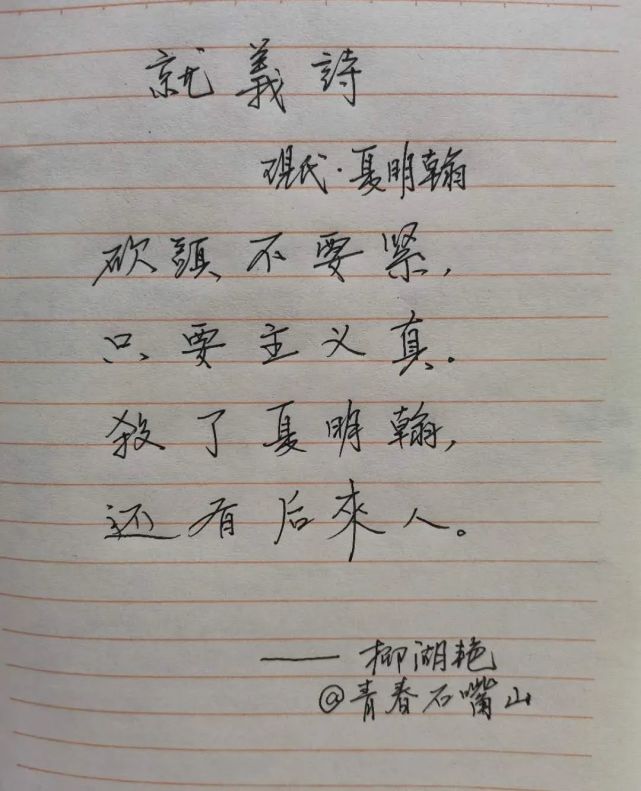 就義詩
現代·夏明翰
砍頭不要緊,
只要主义真.
殺了夏明翰,
还有后來人。
—— 柳湖艳
@青春石嘴山